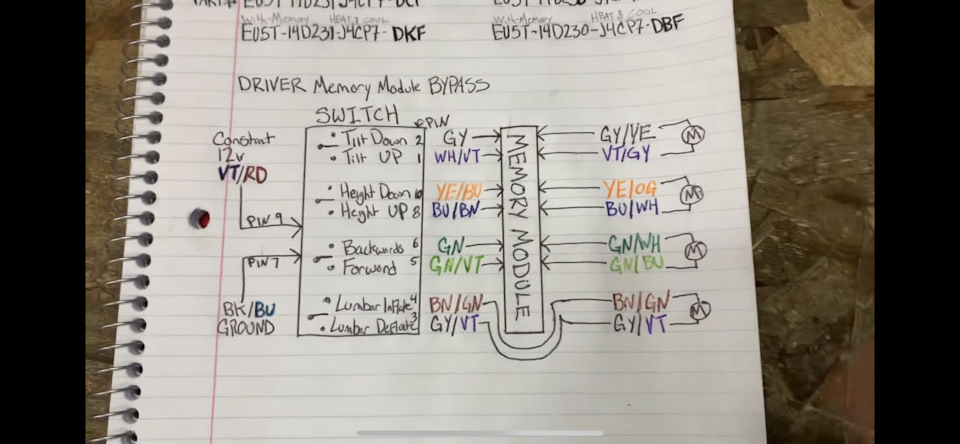 With-Memory HEAT & COOL With-Memory HEAT & COOL
EU5T-14D231-J4CP7-DKF EU5T-14D230-J4CP7-DBF
DRIVER Memory Module BYPASS
SWITCH PIN
Constant
12v
VT/RD
PIN 9
PIN 7
BK/BU
GROUND
Tilt Down 2 GY GY/YE M
Tilt UP 1 WH/VT VT/GY
Height Down 10 YE/BU YE/OG M
Height UP 8 BU/BN BU/WH
Backwards 6 GN GN/WH M
Forward 5 GN/VT GN/BU
Lumbar Inflate 4 BN/GN BN/GN M
Lumbar Deflate 3 GY/VT GY/VT
MEMORY MODULE